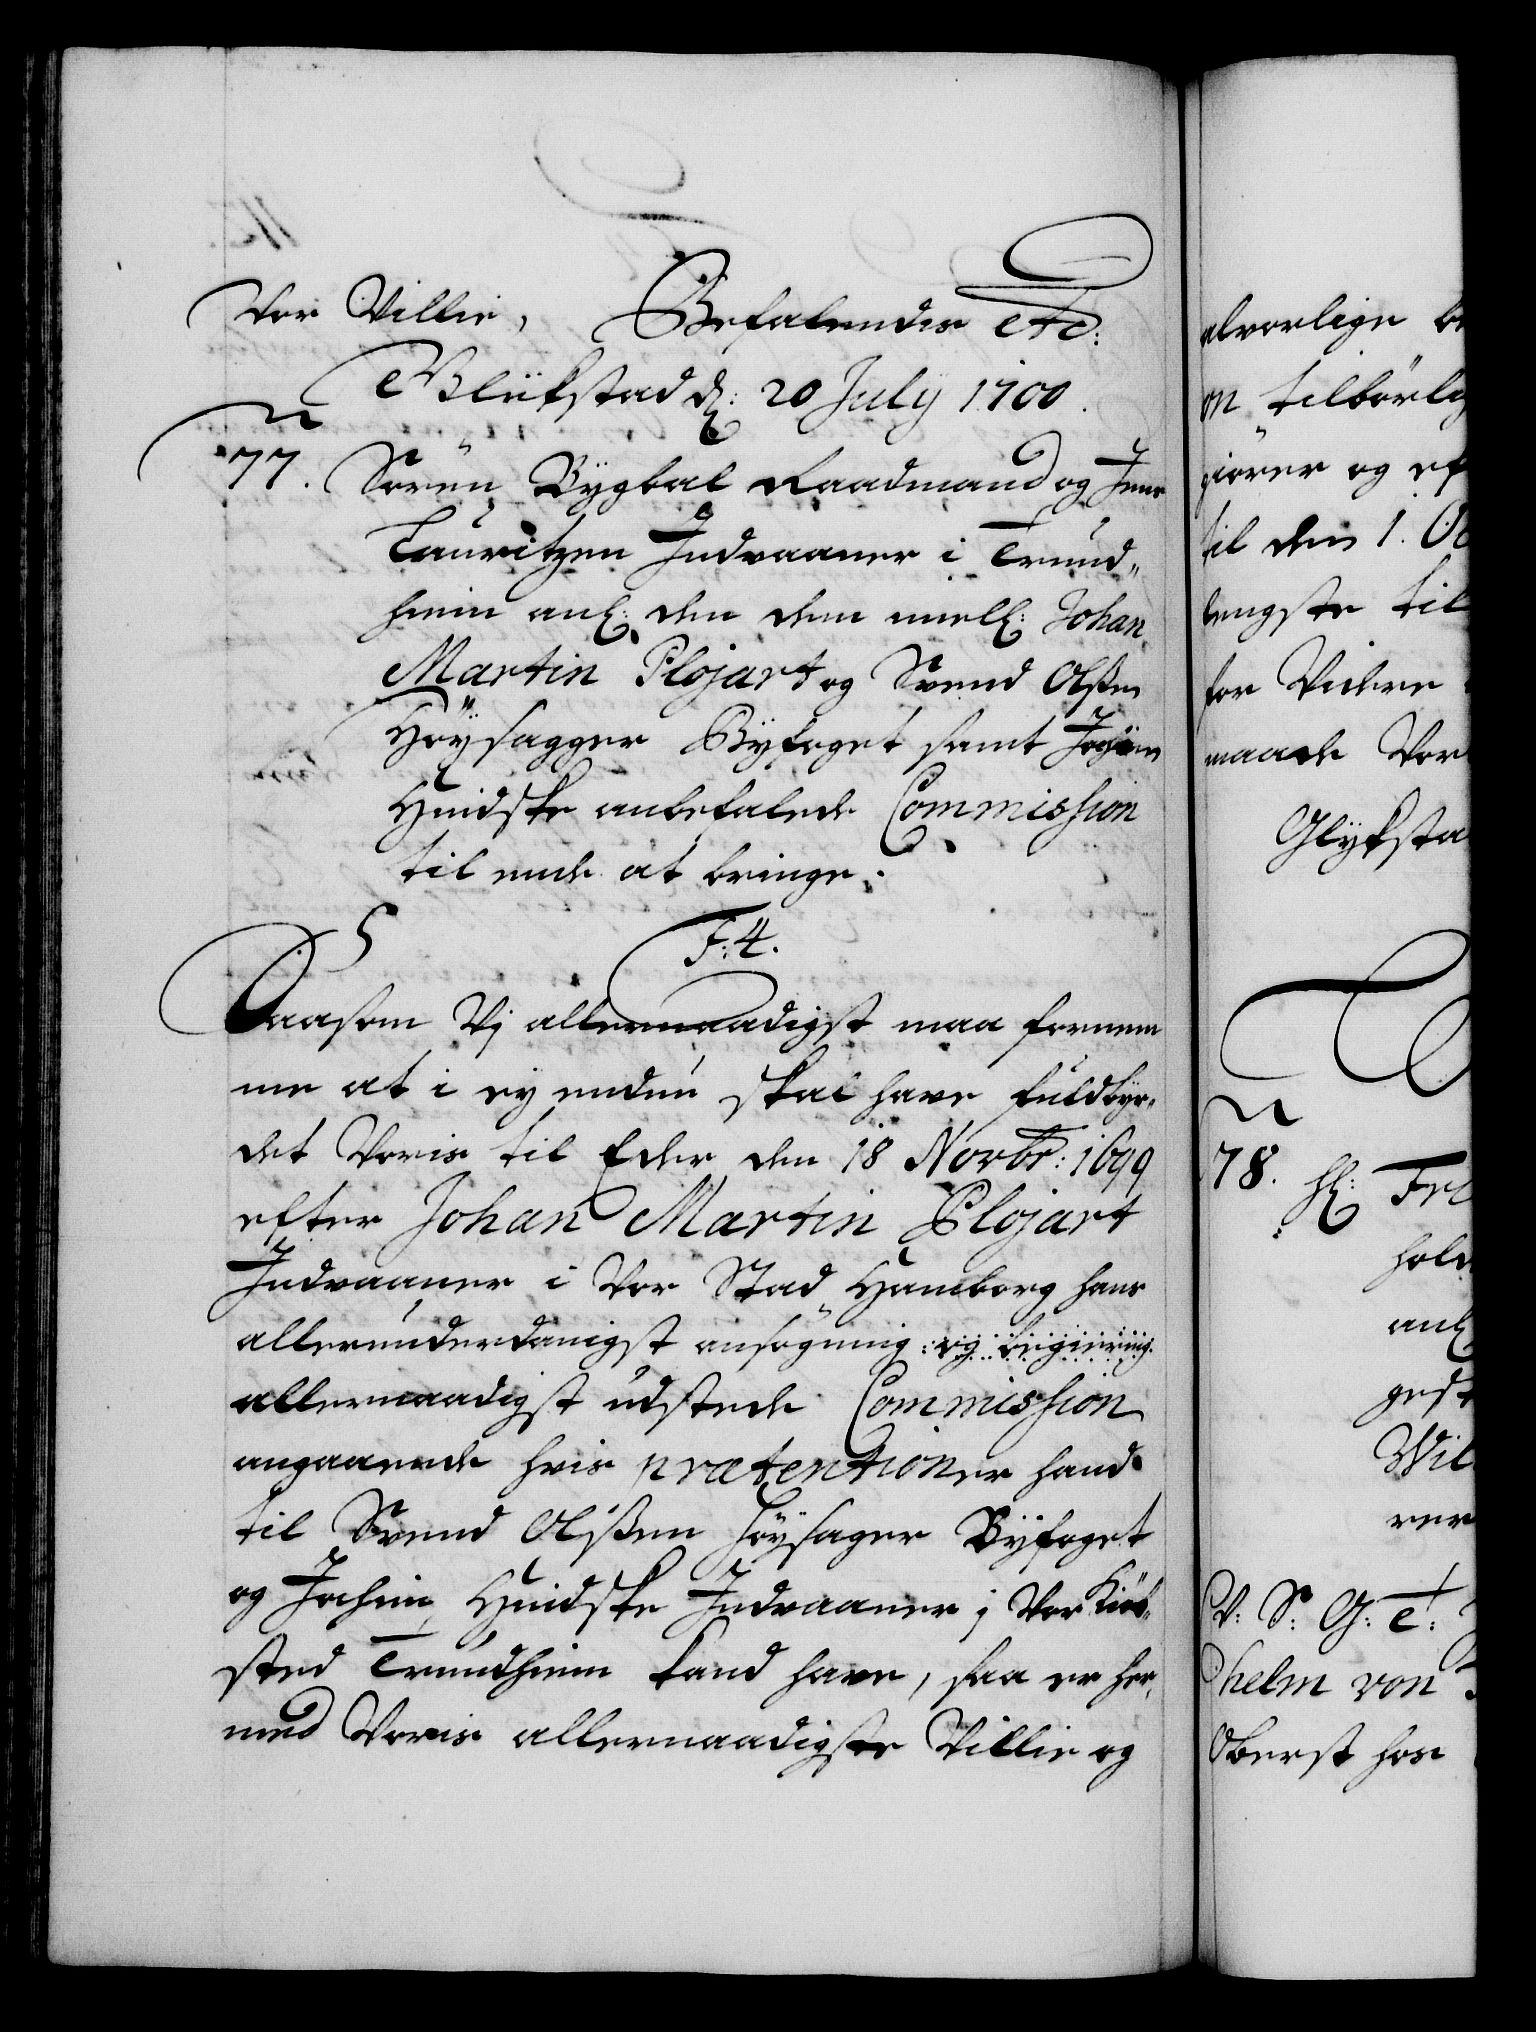 Vor Villie, Befalendis etc:
Glükstad d: 20 July 1700.
77. Sören Bygbal Raadmand og Jens
Lauritzen Indvaaner i Trund„
hiem anl: den dem mell: Johan
Martin Plojart og Svend Olßen
Höysagger Byfoget samt Jochim
Hindske anbefalede Commission
til ende at bringe.
F. 4.
Saasom Vj allernaadigst maa fornem
me at i ey endnu skal have fuldbyr„
det Voris til Eder den 18 Novbr: 1699
efter Johan Martin Plojart
Indvaaner i Vor Stad Hamborg hans
allerunderdanigst ansøgning og begiering
allernaadigst udstede Commission
angaaende hvis prætentioner hand
til Svend Olßen Höysager Byfoget
og Jochim Hindske Indvaaner j Vor Kiöb„
sted Trundhiem kand have, saa er her„
med Voris allernaadigste Villie og
alvorlige be
on tilbörlig
giörer og ef
til den 1. Oc
lengste til
for Videre
maade Vor
Glyksta
78. Hr: Fri
hold
anl
gest
Wil
rer
V: S: G: T:
helm von
Oberst hos